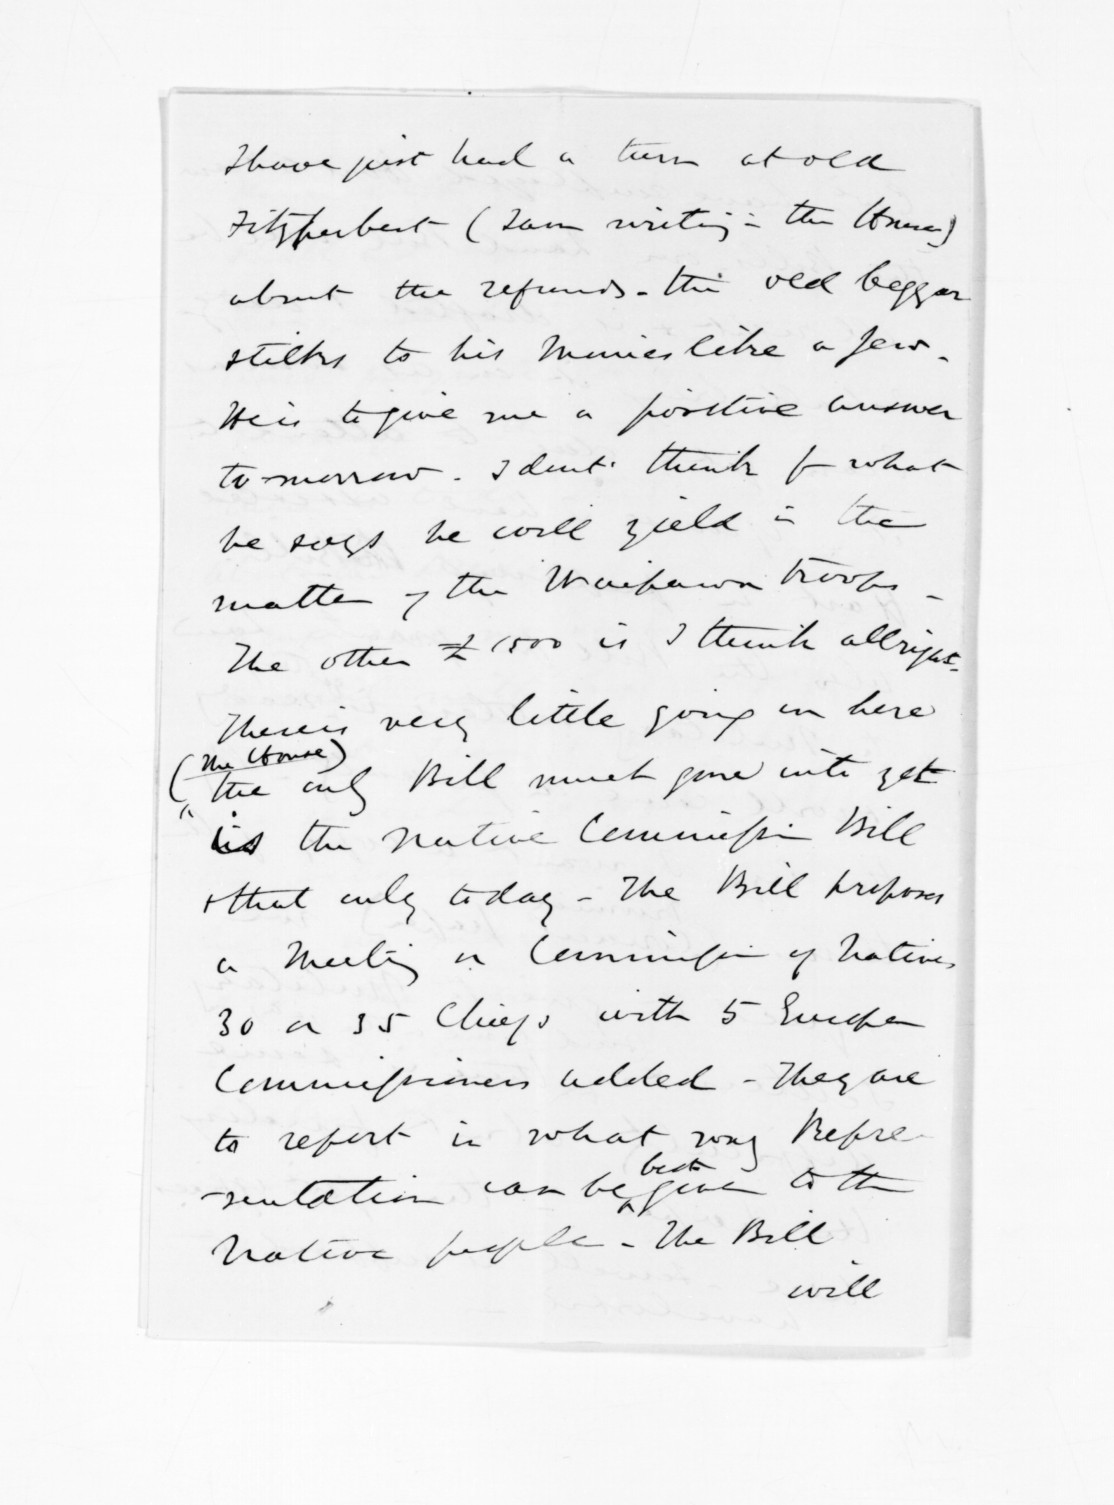 I have just had a turn at old
Fitzherbert (I am writing in the House)
about the refunds - the old beggar
sticks to his monies like a Jew -
He is to give me a positive answer
to-morrow. I dont think fr what
he says he will yield in the
matter of the Waipawa troops -
The other £1500 is I think all right -
There is very little going on here
(The House)
the only Bill much gone into yet
is the Native Commission Bill
& that only today - The Bill proposes
a Meeting or Commission of Natives
30 or 35 Chiefs with 5 European
Commissioners added - They are
to report in what way Repre-
-sentation can be best given to the
Native people - The Bill
will